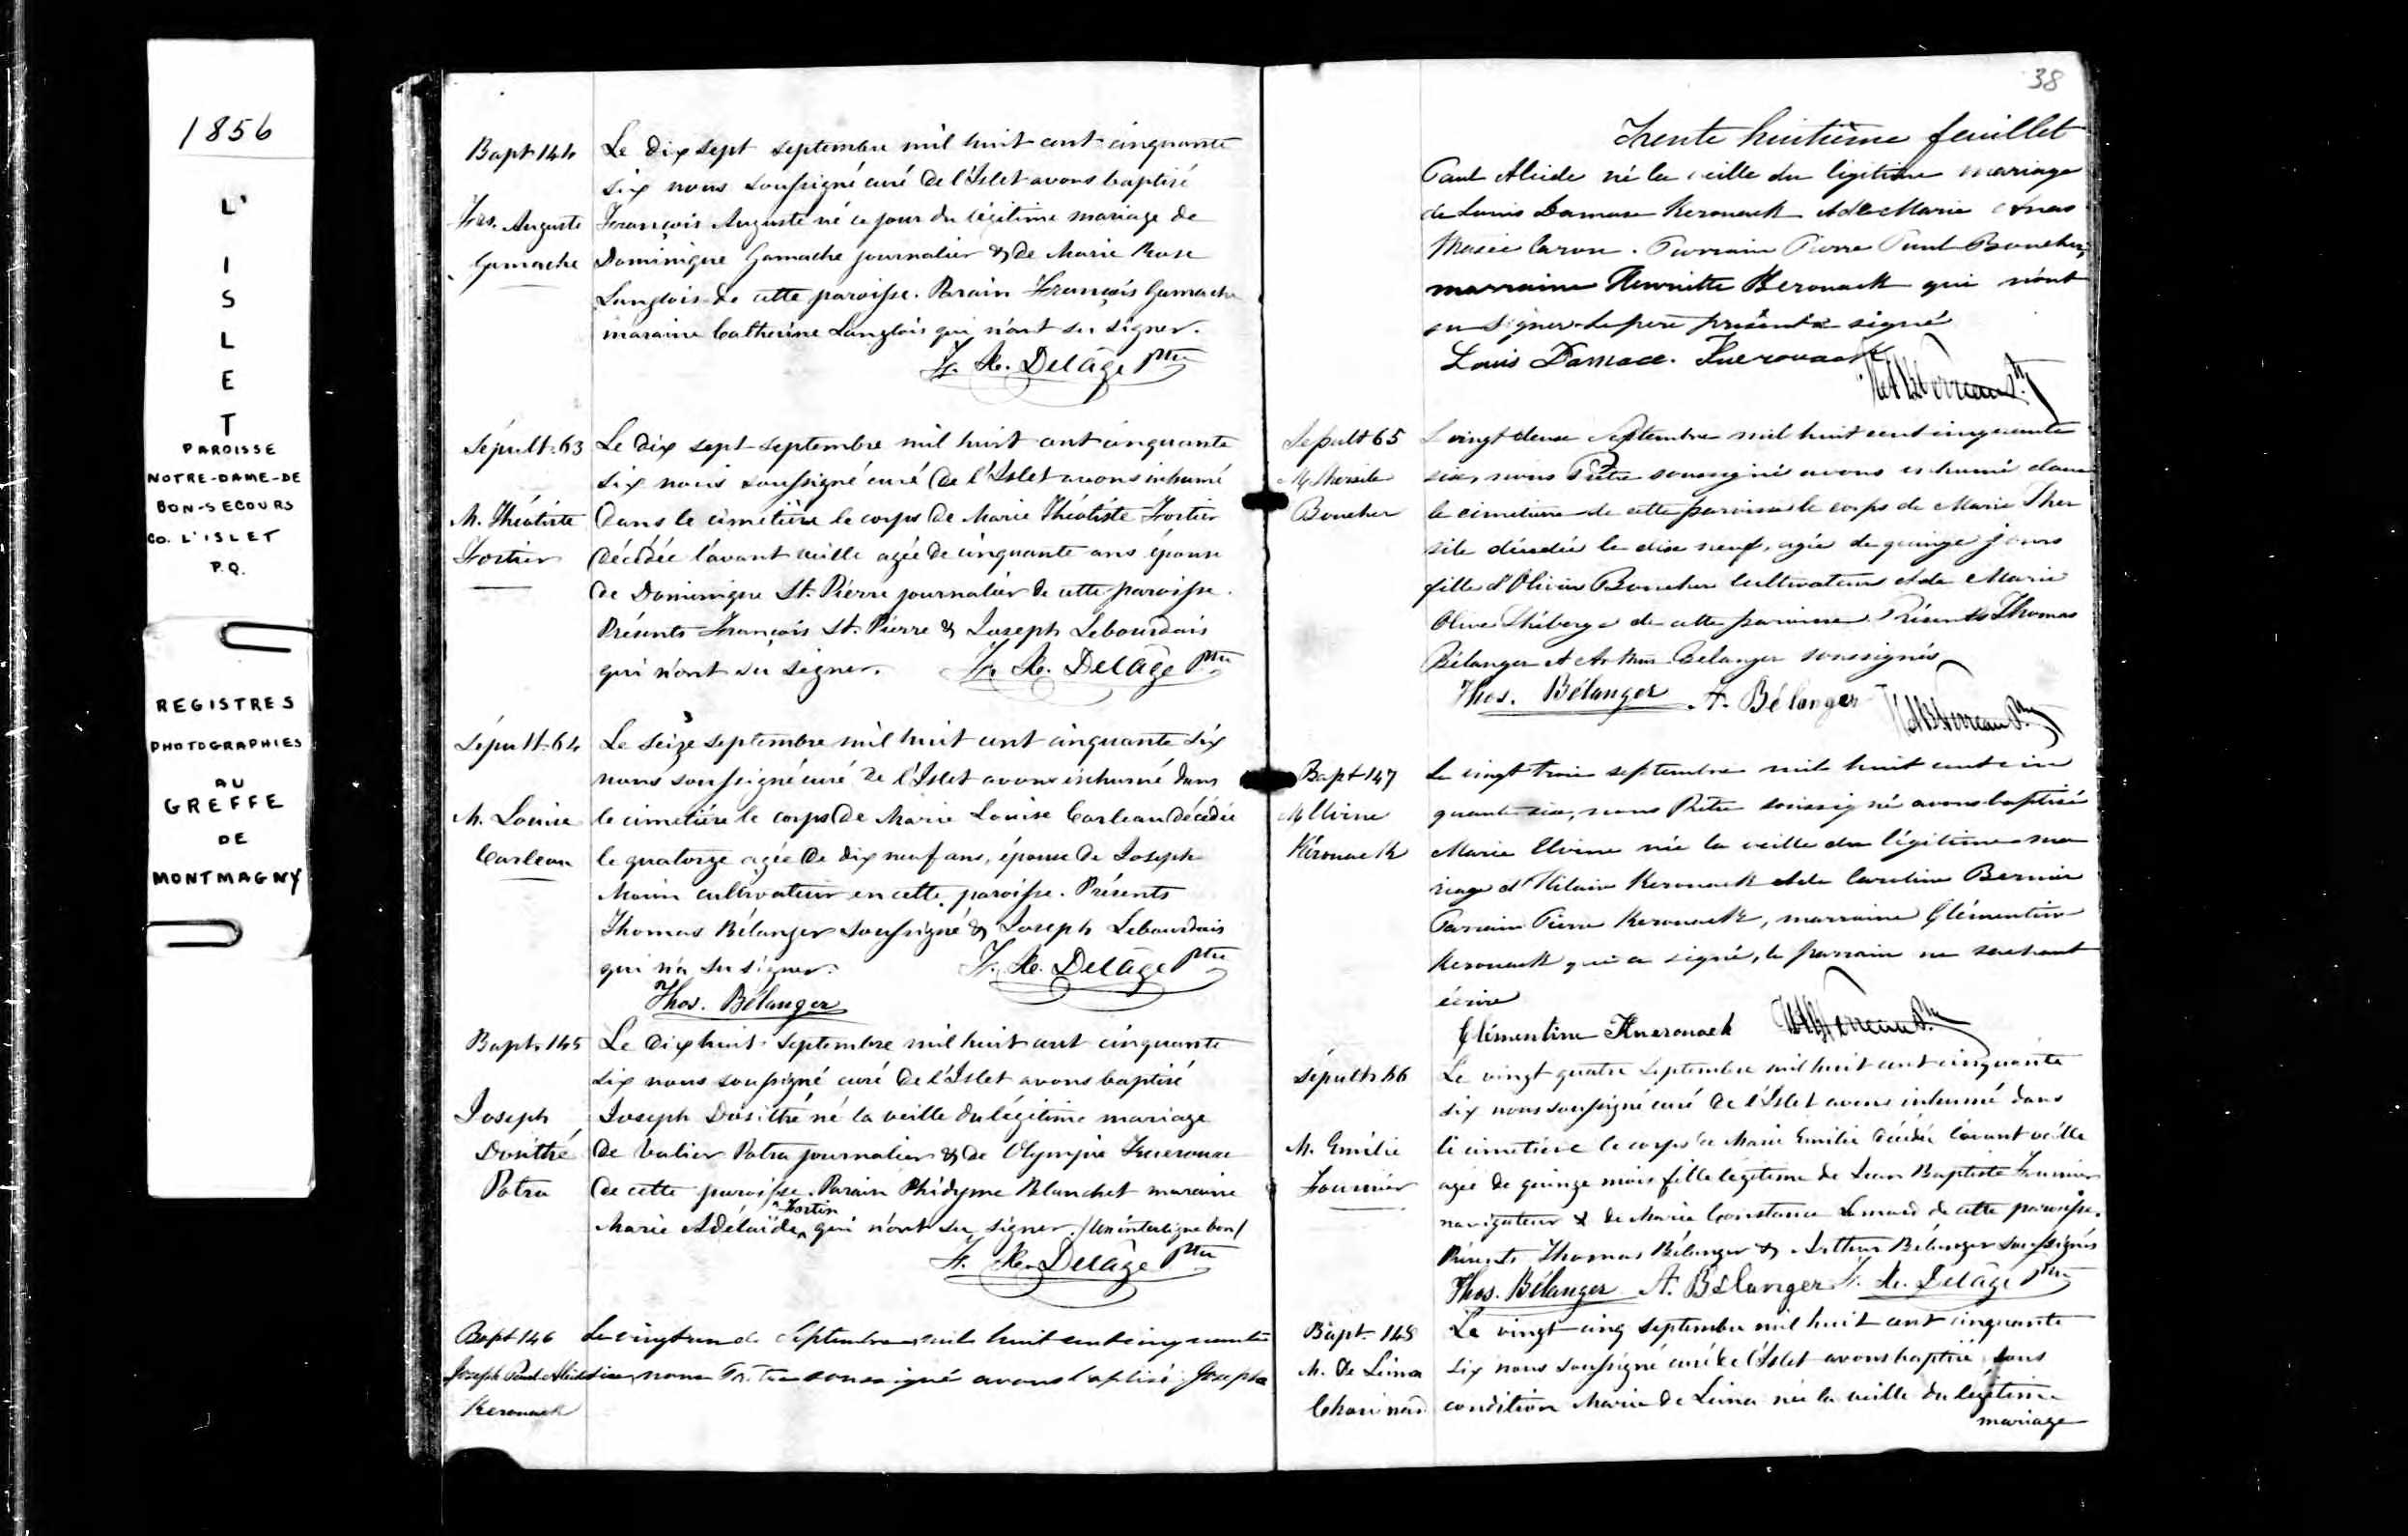 1856
L'
I
S
L
E
T
PAROISSE
NOTRE-DAME-DE
BON-SECOURS
CO. L'ISLET
P.Q.
REGISTRES
PHOTOGRAPHIES
AU
GREFFE
DE
MONTMAGNY
Bapt 144
Frs. Auguste
Gamache
Le dix sept septembre mil huit cent cinquante
six nous soussigné curé de l'Islet avons baptisé
François Auguste né ce jour du légitime mariage de
Dominique Gamache journalier & de Marie Rose
Langlois de cette paroisse. Parain François Gamache
maraine Catherine Langlois qui n'ont su signer.
F. X. Delâge Ptre
Sépult. 63
M. Théotiste
Fortier
Le dix sept septembre mil huit cent cinquante
six nous soussigné curé de l'Islet avons inhumé
dans le cimetière le corps de Marie Théotiste Fortier
décédée l'avant veille agée de cinquante ans épouse
de Dominique St. Pierre journalier de cette paroisse.
Présents François St. Pierre & Joseph Lebourdais
qui n'ont su signer. F. X. Delâge Ptre
Sépult. 64
M. Louise
Carleau
Le seize septembre mil huit cent cinquante six
nous soussigné curé de l'Islet avons inhumé dans
le cimetière le corps de Marie Louise Carleau décédée
le quatorze agée de dix neuf ans, épouse de Joseph
Morin cultivateur en cette paroisse. Présents
Thomas Bélanger soussigné & Joseph Lebourdais
qui n'a su signer. F. X. Delâge Ptre
Thos. Bélanger
Bapt. 145
Joseph
Dosithé
Potra
Le dix huit septembre mil huit cent cinquante
six nous soussigné curé de l'Islet avons baptisé
Joseph Dosithé né la veille du légitime mariage
de Valier Potra journalier & de Olympie
de cette paroisse. Parain Phidyme Blanchet maraine
Fortin
Marie Adélaïde qui n'ont su signer / Un interligne bon /
F. X. Delâge Ptre
Bapt 146
Joseph Paul Alcide
Kerouack
Le vingt un de Septembre mil huit cent cinquante
six, nous Prêtre soussigné avons baptisé Joseph
38
Trente huitième feuillet
Paul Alcide né la veille du légitime mariage
de Louis Damase Kerouack et de Marie
Caron. Parrain Pierre Paul Boucher,
marraine Henriette Kerouack qui n'ont
su signer. Le père présent a signé
Louis Damace. Kuerouack
Sépult 65
M. Thersile
Boucher
Le vingt deux Septembre mil huit cent cinquante
six, nous Prêtre soussigné avons inhumé dans
le cimetière de cette paroisse le corps de Marie Ther
sile décédée le dix neuf, agée de quinze jours
fille d'Olivier Boucher cultivateur et de Marie
Olive Théberge de cette paroisse. Présents Thomas
Bélanger et Arthur Bélanger soussignés
Thos. Bélanger A. Bélanger
Bapt 147
M Elvine
Kérouack
Le vingt trois septembre mil huit cent cin
quante six, nous Prêtre soussigné avons baptisé
Marie Elvine née la veille du légitime ma
riage d'Hilaire Kerouack et de Caroline Bernier
Parrain Pierre Kerouack, marraine Clémentine
Kerouack qui a signé, le parrain ne sachant
écrire
Clémentine Kuerouack
Sépult. 66
M. Emélie
Fournier
Le vingt quatre septembre mil huit cent cinquante
six nous soussigné curé de l'Islet avons inhumé dans
le cimetière le corps de Marie Emilie décédée l'avant veille
agée de quinze mois fille légitime de Jean Baptiste Fournier
navigateur & de Marie Constance de cette paroisse.
Présents Thomas Bélanger & Arthur Bélanger soussignés
Thos. Bélanger A. Bélanger F. X. Delâge Ptre
Bapt. 148
M. De Lima
Chouinard
Le vingt cinq septembre mil huit cent cinquante
six nous soussigné curé de l'Islet avons baptisé sous
condition Marie de Lima née la veille du légitime
mariage